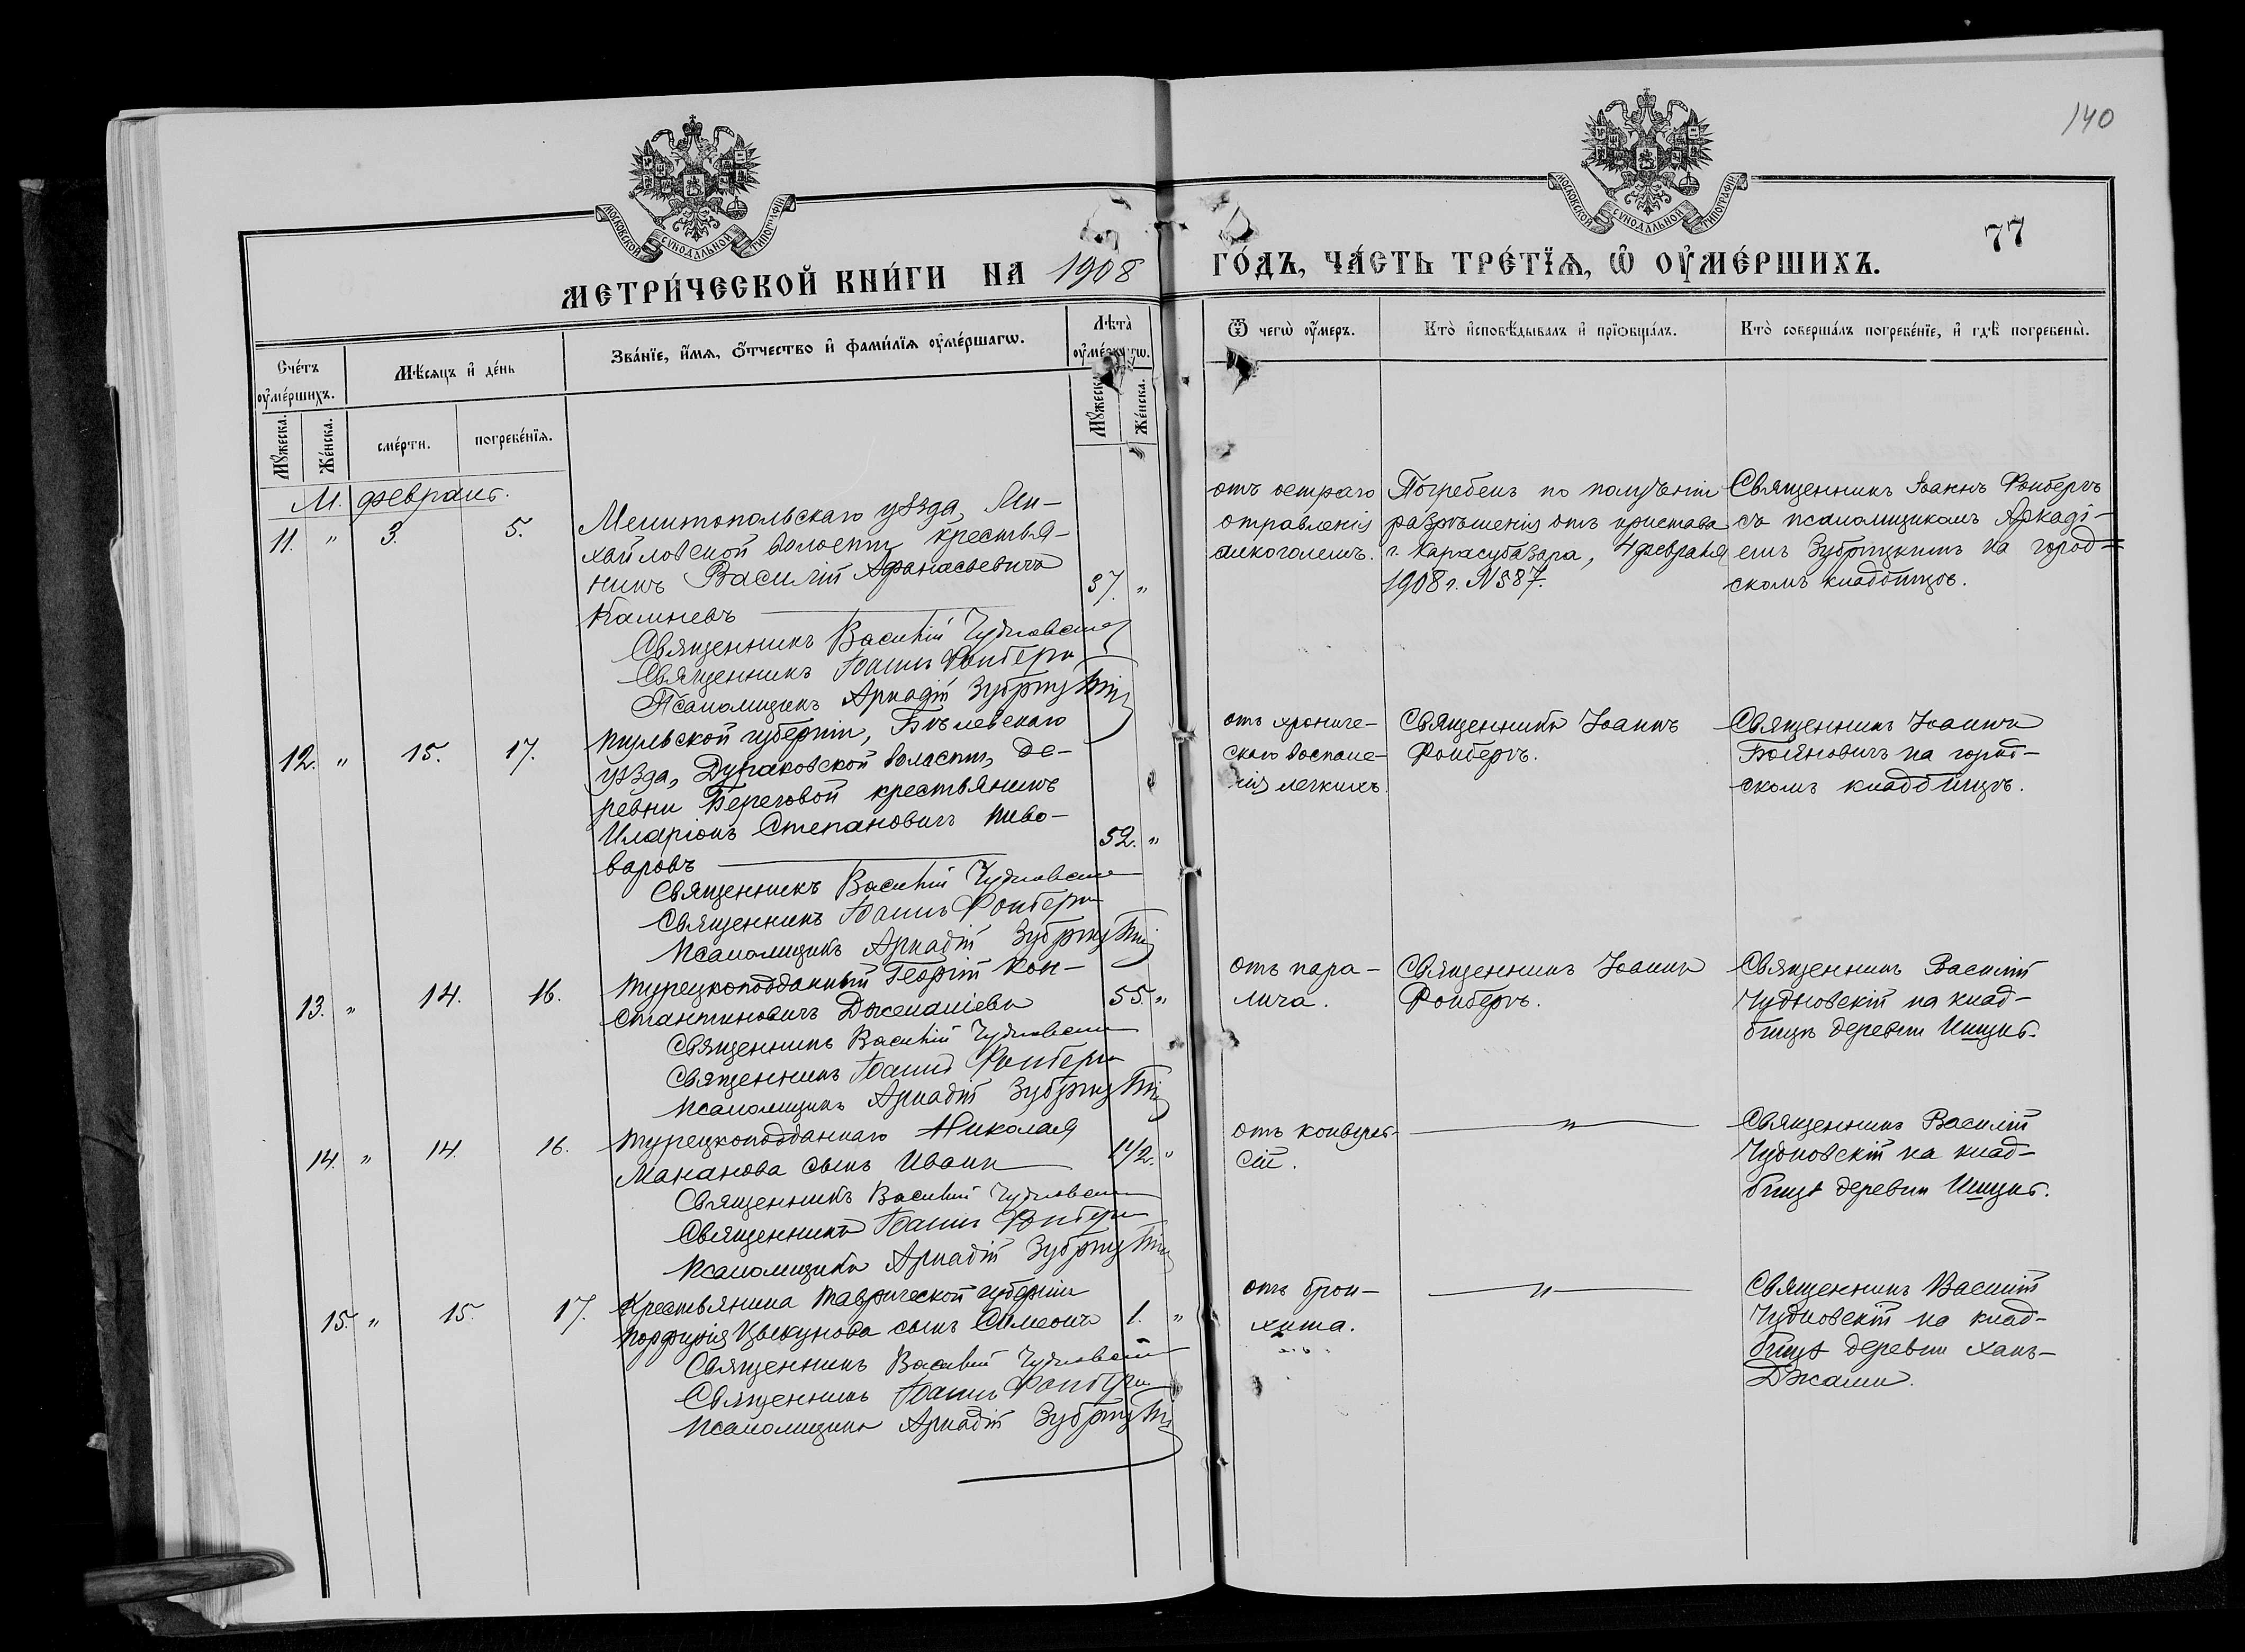 140
МОСКОВСКОЙ СѴНОДАЛЬНОЙ ТИПОГРАФІИ
МОСКОВСКОЙ СѴНОДАЛЬНОЙ ТИПОГРАФІИ
77
МЕТРИ́ЧЕСКОЙ КНИ́ГИ НА 1908 ГО́ДЪ, ЧА́СТЬ ТРЕ́ТЇѦ, Ѡ҆ ОУ҆МЕ́РШИХЪ.
Сче́тъ оу҆ме́ршихъ.
Мѣ́сѧцъ и҆ де́нь
Зва́нїе, и҆́мѧ, ѻ҆́тчество и҆ фамі́лїѧ оу҆ме́ршагѡ.
Лѣ́та̀ оу҆ме́ршагѡ.
Ѿ чегѡ̀ оу҆́меръ.
Кто̀ и҆сповѣ́дывалъ и҆ прїѡбща́лъ.
Кто̀ соверша́лъ погребе́нїе, и҆ гдѣ̀ погребены̀.
Мꙋ́жеска.
Же́нска.
сме́рти.
погребе́нїѧ.
Мꙋ́жеска.
Же́нска.
М. февраль.
11. " 3. 5.
Мелитопольскаго уѣзда, Ми-
хайловской волости крестья-
нинъ Василій Афанасьевичъ
Камневъ
37. "
Священникъ Василій Чудновскій
Священникъ Іоаннъ Фонберъ
Псаломщикъ Аркадій Зубрицкій
отъ остраго
отравленія
алкоголемъ.
Погребенъ по полученіи
разрѣшенія отъ пристава
г. Карасубазара, 4 февраля
1908 г. № 587.
Священникъ Іоаннъ Фонберъ
съ псаломщикомъ Аркаді-
емъ Зубрицкимъ на город-
скомъ кладбищѣ.
12. " 15. 17.
Тульской губерніи, Бѣлевскаго
уѣзда, Дураковской волости, де-
ревни Береговой крестьянинъ
Иларіонъ Степановичъ Пиво-
варовъ
52. "
Священникъ Василій Чудновскій
Священникъ Іоаннъ Фонберъ
Псаломщикъ Аркадій Зубрицкій
отъ хрониче-
скаго воспале-
нія легкихъ.
Священникъ Іоаннъ
Фонберъ.
Священникъ Іоаннъ
Бояновичъ на город-
скомъ кладбищѣ.
13. " 14. 16.
Турецкоподданный Георгій Кон-
стантиновичъ Джемаліевъ
55. "
Священникъ Василій Чудновскій
Священникъ Іоаннъ Фонберъ
Псаломщикъ Аркадій Зубрицкій
отъ пара-
лича.
Священникъ Іоаннъ
Фонберъ.
Священникъ Василій
Чудновскій на клад-
бищѣ деревни Ишунь.
14. " 14. 16.
Турецкоподданнаго Николая
Мананова сынъ Иванъ
1 1/2. "
Священникъ Василій Чудновскій
Священникъ Іоаннъ Фонберъ
Псаломщикъ Аркадій Зубрицкій
отъ конвуль-
сій.
"
Священникъ Василій
Чудновскій на клад-
бищѣ деревни Ишунь.
15. " 15. 17.
Крестьянина Таврической губерніи
Порфирія Цыкунова сынъ Симеонъ
1. "
Священникъ Василій Чудновскій
Священникъ Іоаннъ Фонберъ
Псаломщикъ Аркадій Зубрицкій
отъ брон-
хита.
"
Священникъ Василій
Чудновскій на клад-
бищѣ деревни Ханъ-
Джами.